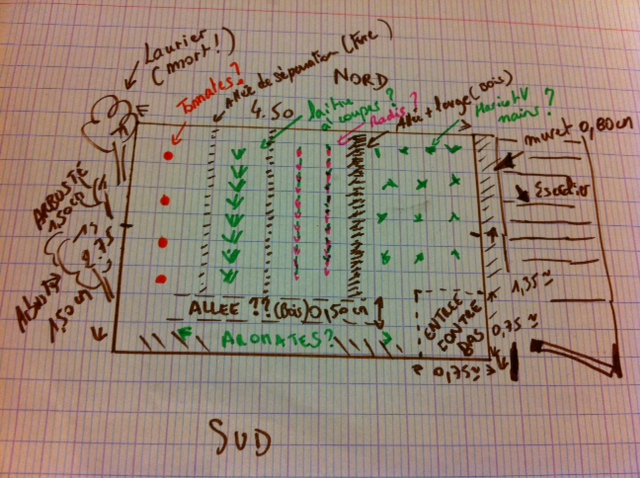 Laurier
(mort!)
Tomates?
Allée de séparation (terre)
NORD
4.50
laitue
à coupes?
Radis?
Allée + large (bois)
Haricot V
nains?
muret 0,80cm
Escalier
ARBUSTE
1,50cm
0.75
1,50cm
ALLEE ?? (Bois) 0,50cm
AROMATES?
ENTRÉE
CONTRE
BAS
1,35
0,75
0,75
SUD